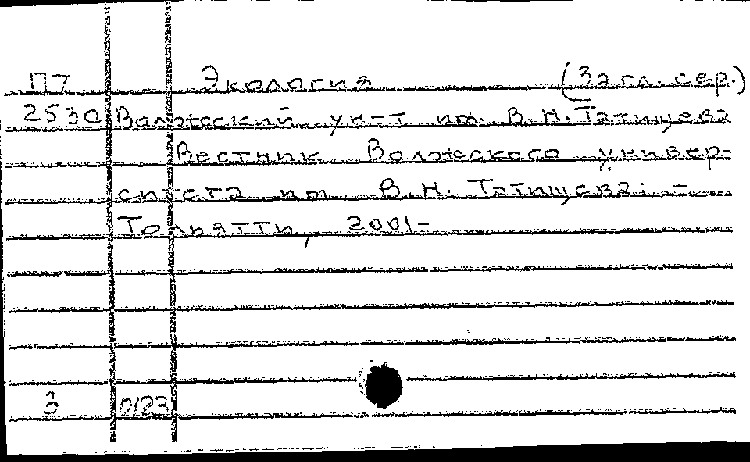 П7 Экология (Загл. сер.)
2530 Волжский ун-т им. В.Н. Татищева
Вестник Волжского универ-
ситета им. В.Н. Татищева. -
Тольятти, 2001-
3 0123